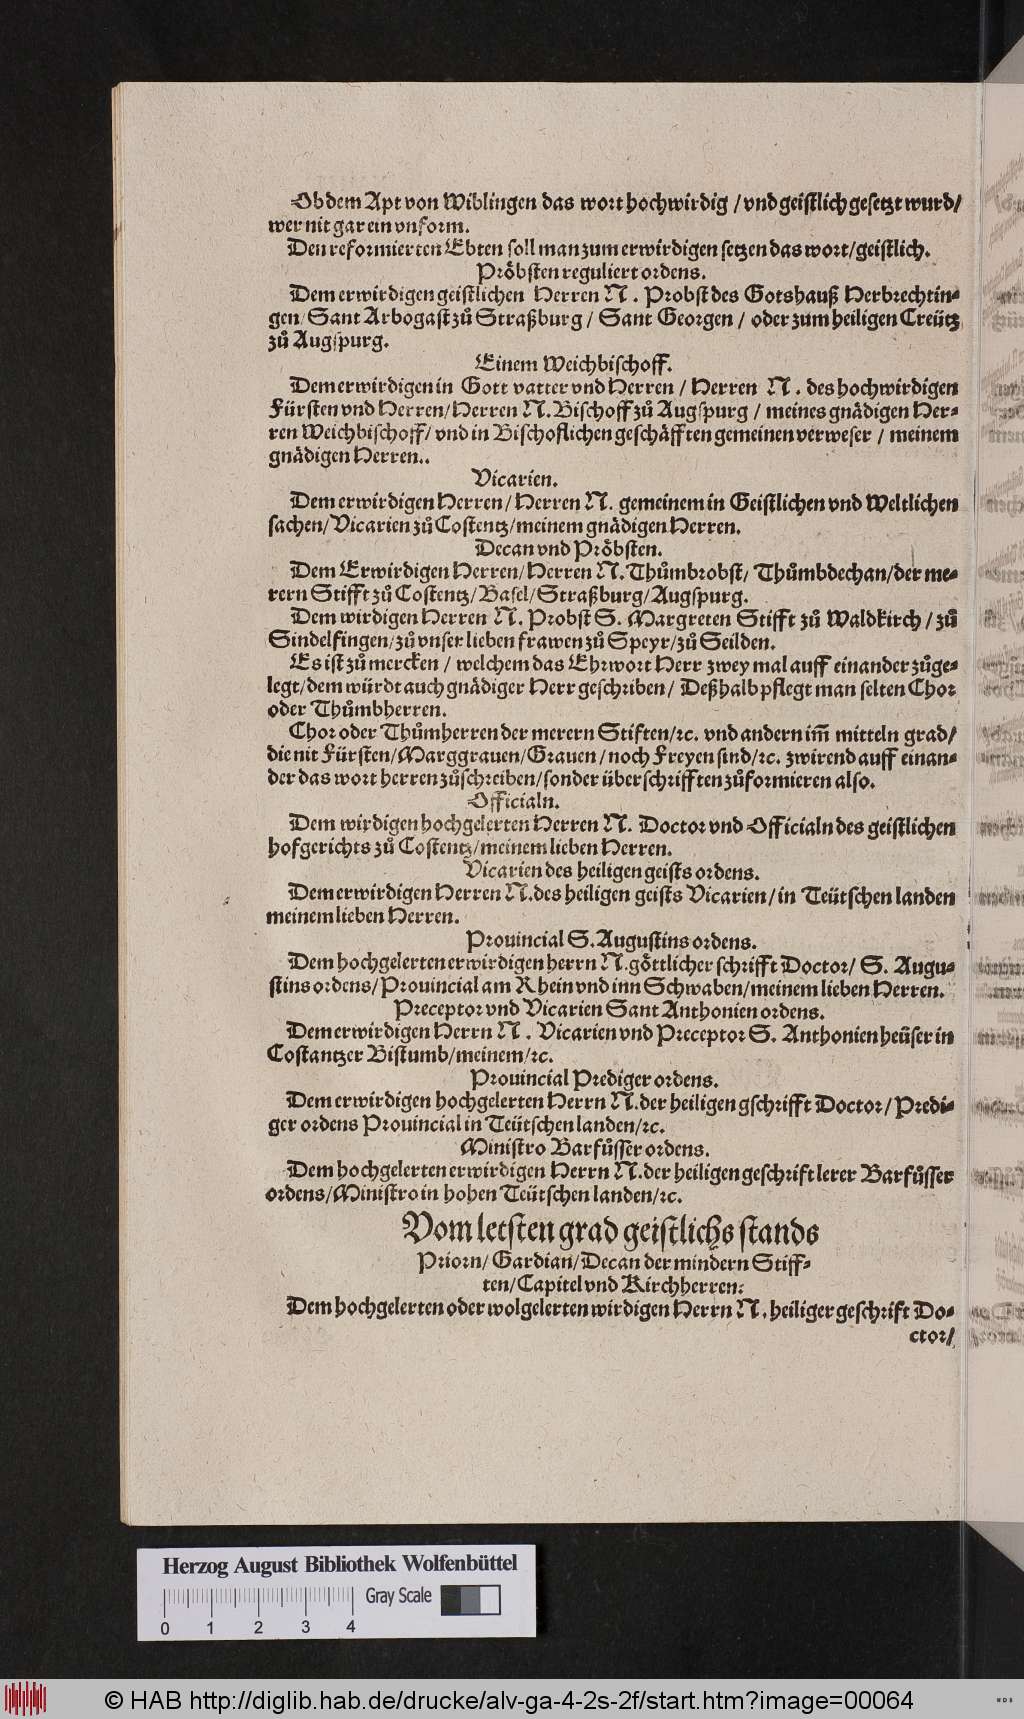 Ob dem Apt von Wiblingen das wort hochwirdig / vnd geistlich gesetzt wurd/
wer nit gar ein vnform.
Den reformierten Ebten soll man zum erwirdigen setzen das wort/geistlich.
Pröbsten reguliert ordens.
Dem erwirdigen geistlichen Herren N. Probst des Gotshauß Herbrechtin⸗
gen/ Sant Arbogast zů Straßburg / Sant Georgen / oder zum heiligen Creütz
zů Augspurg.
Einem Weichbischoff.
Dem erwirdigen in Gott vatter vnd Herren / Herren N. des hochwirdigen
Fürsten vnd Herren/Herren N. Bischoff zů Augspurg / meines gnädigen Her⸗
ren Weichbischoff/ vnd in Bischoflichen geschäfften gemeinen verweser / meinem
gnädigen Herren..
Vicarien.
Dem erwirdigen Herren/ Herren N. gemeinem in Geistlichen vnd Weltlichen
sachen/ Vicarien zů Costentz/meinem gnädigen Herren.
Decan vnd Pröbsten.
Dem Erwirdigen Herren/Herren N. Thůmbrobst/ Thůmbdechan/der me⸗
rern Stifft zů Costentz/Basel/Straßburg/Augspurg.
Dem wirdigen Herren N. Probst S. Margreten Stifft zů Waldkirch / zů
Sindelfingen/zů vnser lieben frawen zů Speyr/zů Seilden.
Es ist zů mercken / welchem das Ehrwort Herr zwey mal auff einander zůge⸗
legt/dem würdt auch gnädiger Herr geschriben/ Deßhalb pflegt man selten Chor
oder Thůmbherren.
Chor oder Thůmherren der merern Stiften/ꝛc. vnd andern im̃ mitteln grad/
die nit Fürsten/Marggrauen/Grauen/noch Freyen sind/ꝛc. zwirend auff einan⸗
der das wort herren zůschreiben/sonder überschrifften zůformieren also.
Officialn.
Dem wirdigen hochgelerten Herren N. Doctor vnd Officialn des geistlichen
hofgerichts zů Costentz/meinem lieben Herren.
Vicarien des heiligen geists ordens.
Dem erwirdigen Herren N. des heiligen geists Vicarien/in Teütschen landen
meinem lieben Herren.
Prouincial S. Augustins ordens.
Dem hochgelerten erwirdigen herrn N. göttlicher schrifft Doctor/ S. Augu⸗
stins ordens/Prouincial am Rhein vnd inn Schwaben/meinem lieben Herren.
Preceptor vnd Vicarien Sant Anthonien ordens.
Dem erwirdigen Herrn N. Vicarien vnd Preceptor S. Anthonien heüser in
Costantzer Bistumb/meinem/ꝛc.
Prouincial Prediger ordens.
Dem erwirdigen hochgelerten Herrn N. der heiligen gschrifft Doctor/ Predi⸗
ger ordens Prouincial in Teütschen landen/ꝛc.
Ministro Barfůsser ordens.
Dem hochgelerten erwirdigen Herrn N. der heiligen geschrift lerer Barfůsser
ordens/Ministro in hohen Teütschen landen/ꝛc.
Vom letsten grad geistlichs stands
Priorn/ Gardian/Decan der mindern Stiff⸗
ten/Capitel vnd Kirchherren:
Dem hochgelerten oder wolgelerten wirdigen Herrn N. heiliger geschrift Do⸗
ctor/
Herzog August Bibliothek Wolfenbüttel
Gray Scale
0 1 2 3 4
© HAB http://diglib.hab.de/drucke/alv-ga-4-2s-2f/start.htm?image=00064